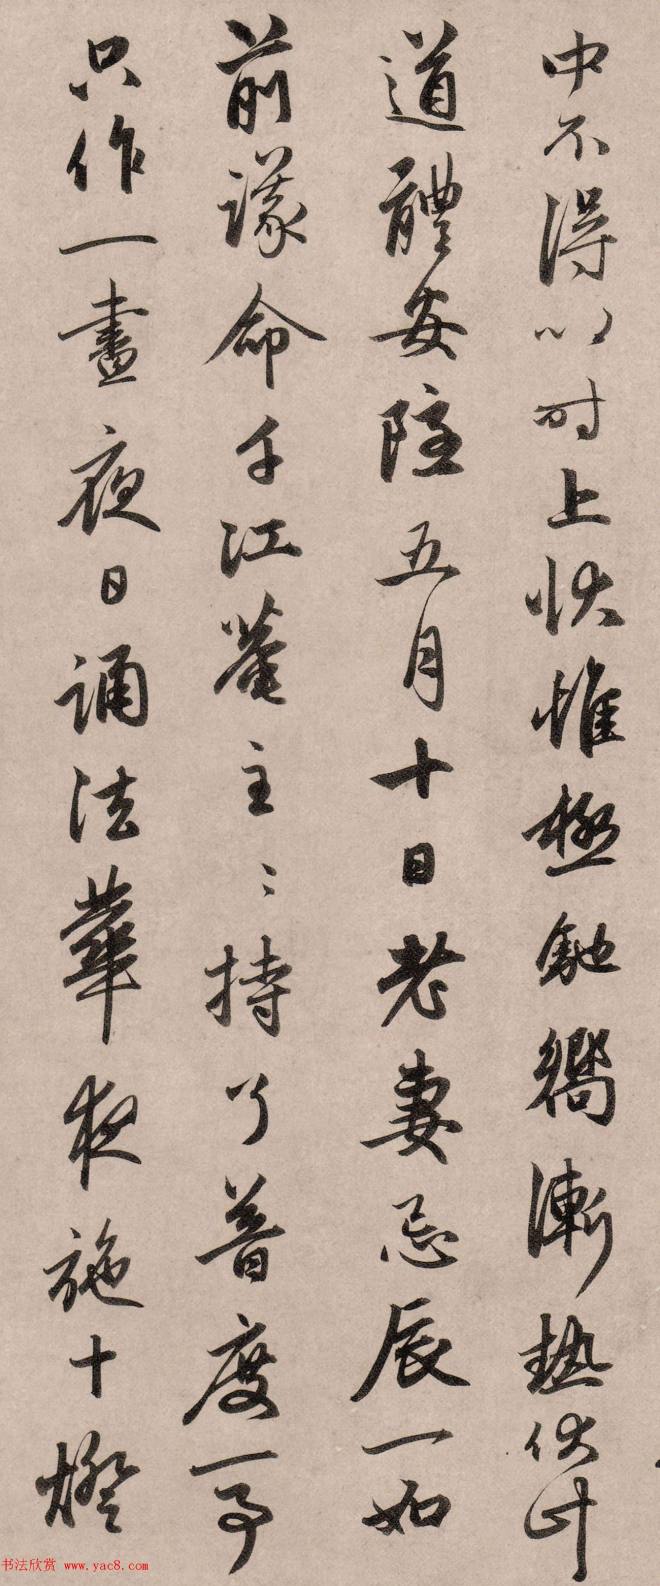 中不得以时上状惟極馳嚮漸熱伏計
道體安隱五月十日老妻忌辰一如
前議命千江菴主〻持了普度一事
只作一晝夜日誦法華夜施十燈
书法欣赏 www.yac8.com